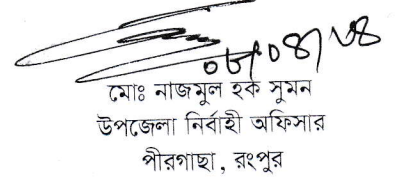 ০৮/০৪/২৪
মোঃ নাজমুল হক সুমন
উপজেলা নির্বাহী অফিসার
পীরগাছা, রংপুর